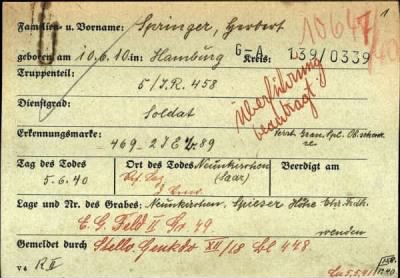 Familien- u. Vorname: Springer, Herbert
1
10647/40
geboren am 10.6.10 in: Hamburg Kreis: G-A 139/0339
Truppenteil: 5/J.R. 458
Überführung beantragt!
Dienstgrad: Soldat
Erkennungsmarke: -469- 2 J E 89
Tag des Todes Ort des Todes Neunkirchen Beerdigt am
5.6.40 (Saar)
Lage und Nr. des Grabes: Neunkirchen, Spieser Höhe Ehr.Frdh.
E. G. Feld II Gr 49 wenden
Gemeldet durch: XII/18 Bl 448.
V4 R II